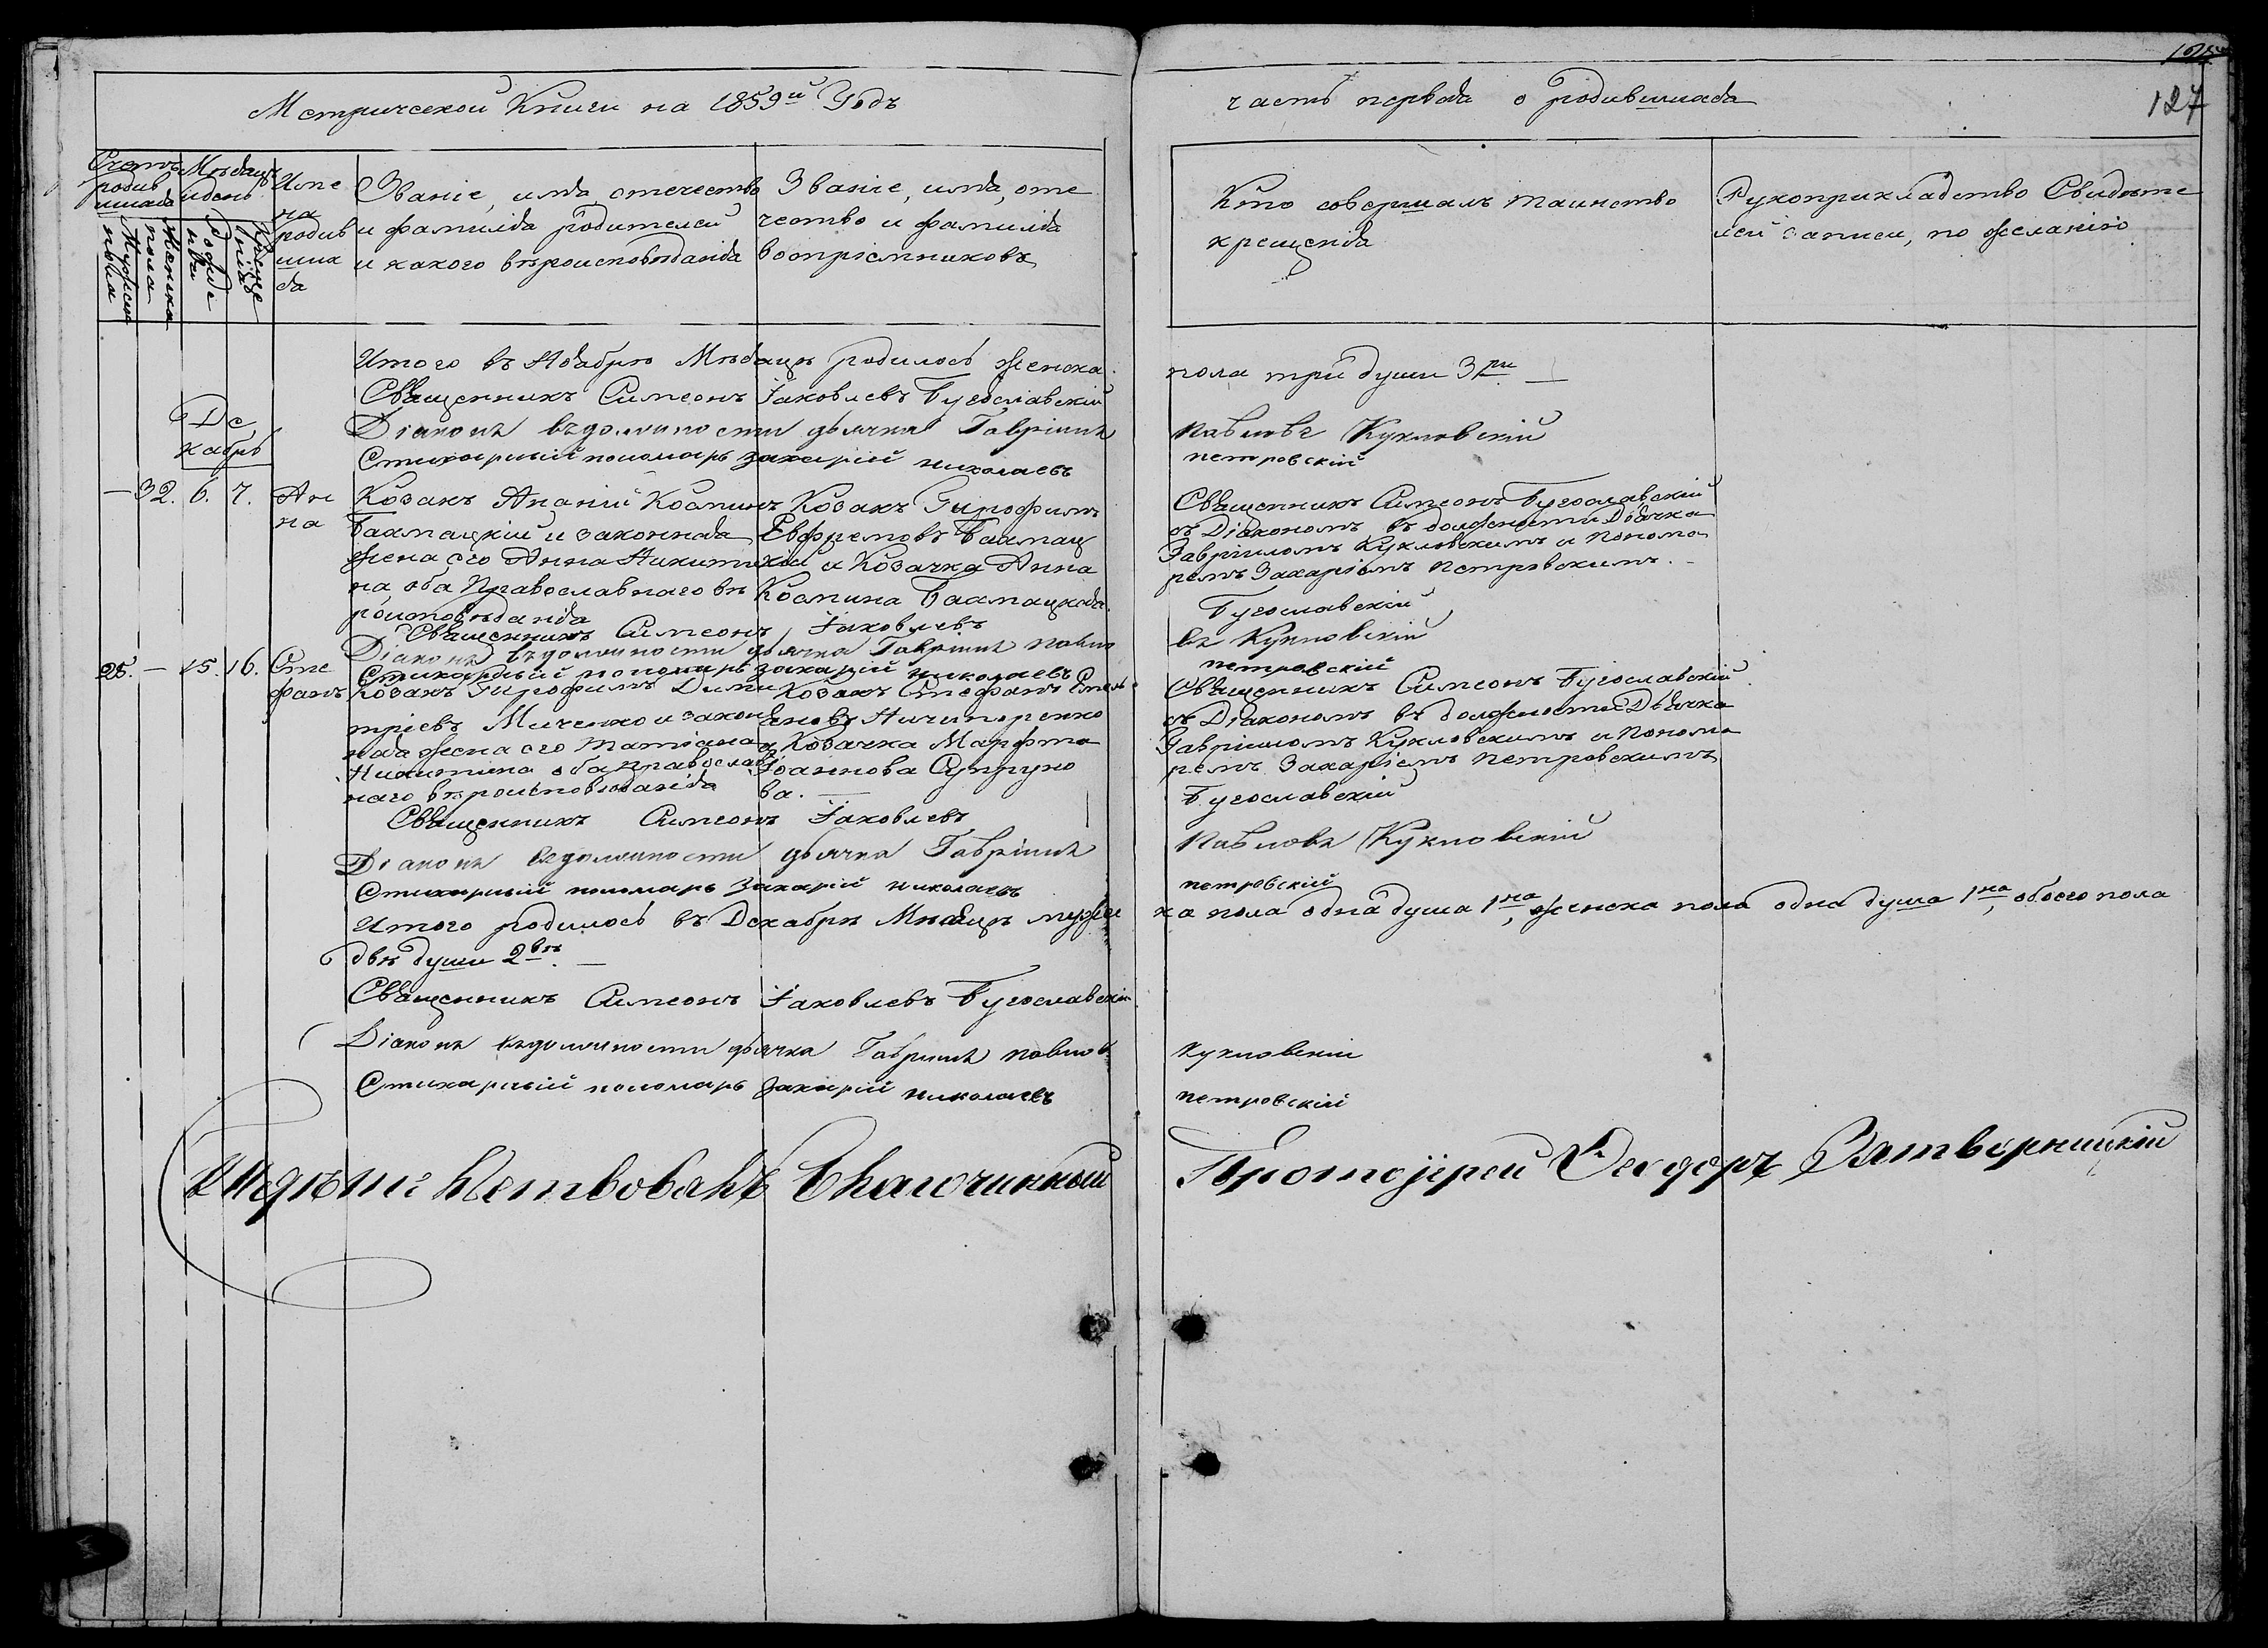 Метрической Книги на 1859й Годъ
часть первая о родившихся
127
Счетъ родив шихся
Мужеска пола
Женска пола
Мѣсяцъ и день
Рожде нія
Креще нія
Име на родив ших ся
Званіе, имя, отечество
и фамилія родителей
и какого вѣроисповѣданія
Званіе, имя, оте
чество и фамилія
воспріемниковъ
Кто совершалъ таинство
крещенія
Рукоприкладство Свидѣте
лей записи, по желанію
Итого въ Ноябрѣ Мѣсяцѣ родилось женска
пола три души 3ри
Священникъ Симеонъ Іаковлевъ Бугославскій
Діаконъ въ должности дьячка Гавріилъ Павловъ Кукловскій
Стихарный пономарь Захарій Николаевъ Петровскій
Де
кабрь
— 32. 6. 7. Ан
на
Козакъ Ананій Косминъ
Бахмацкій и законная
жена его Анна Никити
на, оба Православнаго вѣ
роисповѣданія
Козакъ Трофимъ
Евфремовъ Бахмац
кій и Козачка Анна
Космина Бахмацкая.
Священникъ Симеонъ Бугославскій
съ Діакономъ въ должности Дьячка
Гавріиломъ Кукловскимъ и Понома
ремъ Захаріемъ Петровскимъ.
Священникъ Симеонъ Іаковлевъ Бугославскій
Діаконъ въ должности дьячка Гавріилъ Павло въ Кукловскій
Стихарный пономарь Захарій Николаевъ Петровскій
25. — 15. 16. Сте
фанъ
Козакъ Трофимъ Дими
тріевъ Миченко и закон
ная жена его Татіана
Никитина оба Православ
наго вѣроисповѣданія
Козакъ Стефанъ Емель
яновъ Ничипоренко
и Козачка Марфа
Іоаннова Супруно
ва.
Священникъ Симеонъ Бугославскій
съ Діакономъ въ должности Дьячка
Гавріиломъ Кукловскимъ и Понома
ремъ Захаріемъ Петровскимъ
Священникъ Симеонъ Іаковлевъ Бугославскій
Діаконъ въ должности дьячка Гавріилъ Павловъ Кукловскій
Стихарный пономарь Захарій Николаевъ Петровскій
Итого родилось въ Декабрѣ Мѣсяцѣ мужес
ка пола одна душа 1на, женска пола одна душа 1на, обоего пола
двѣ души 2вѣ.
Священникъ Симеонъ Іаковлевъ Бугославскій
Діаконъ въ должности дьячка Гавріилъ Павлов Кукловскій
Стихарный пономарь Захарій Николаевъ Петровскій
Свидѣтельствовалъ Благочинный Протоіерей Феодоръ Затворницкій